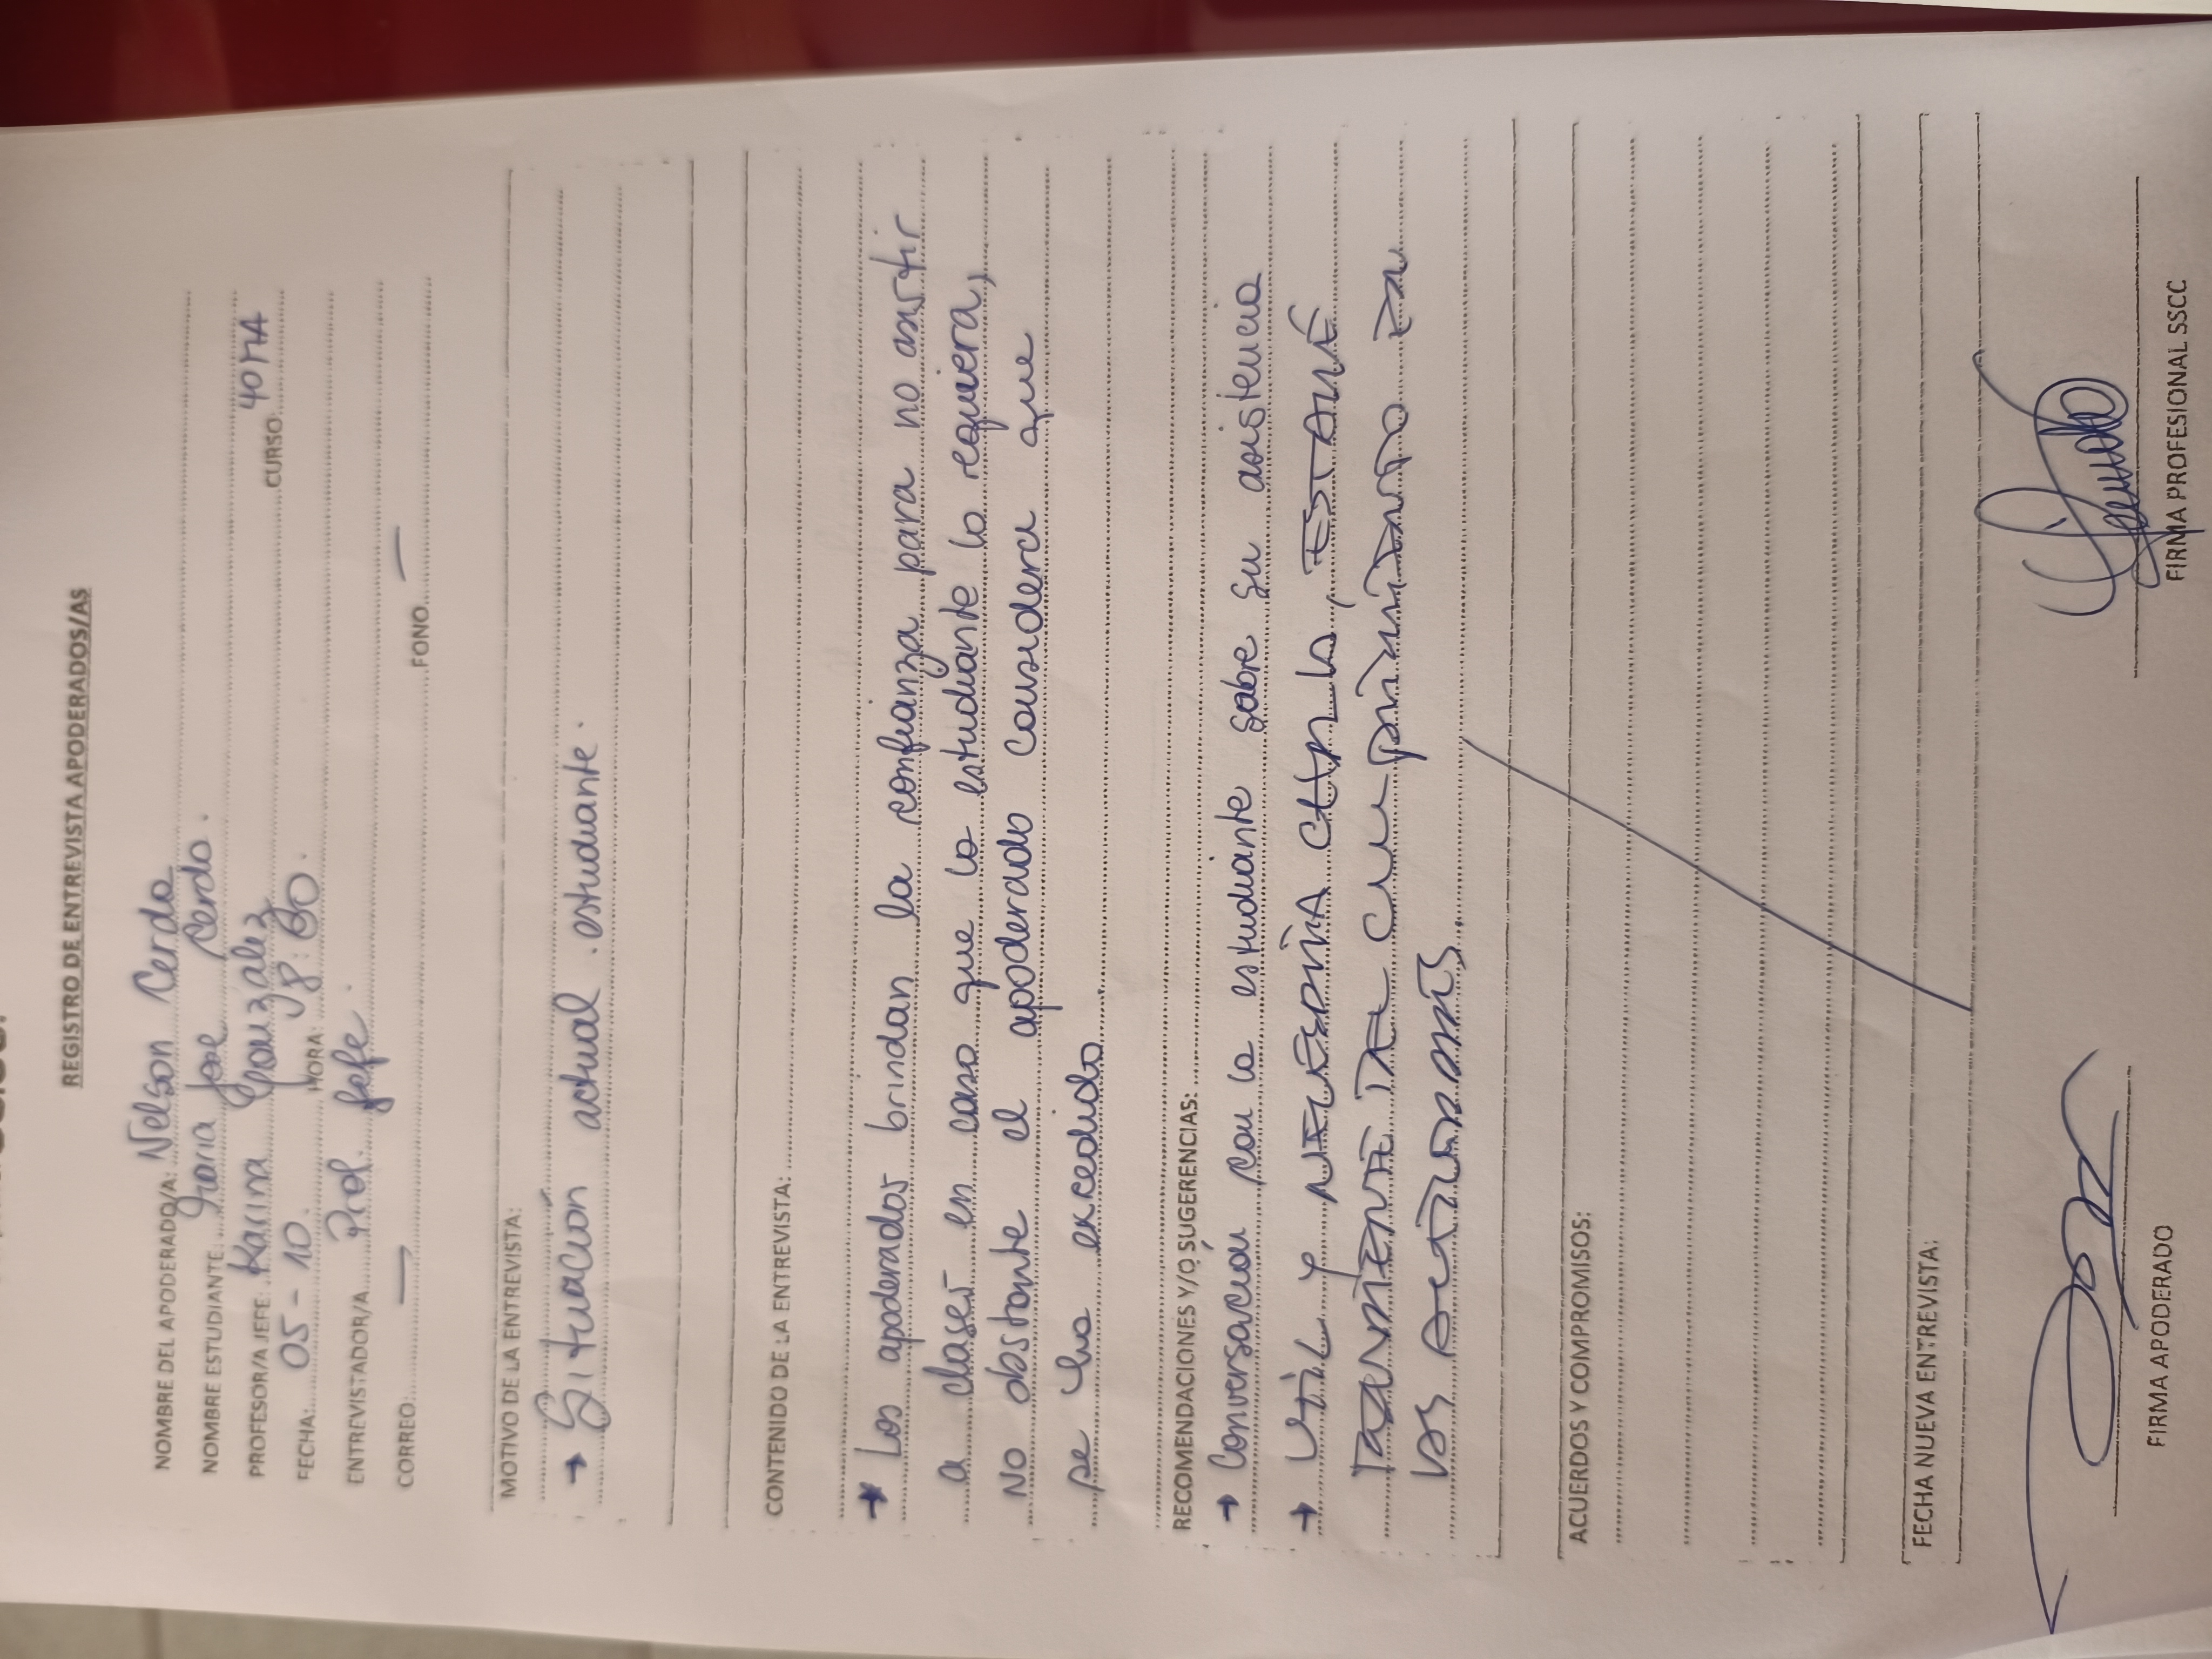 REGISTRO DE ENTREVISTA APODERADOS/AS
NOMBRE DEL APODERADO/A: Nelson Cerda
NOMBRE ESTUDIANTE: María José Cerda.
PROFESOR/A JEFE: Karina González CURSO 4º MA
FECHA: 05-10. HORA: 18:30.
ENTREVISTADOR/A Prof. Jefe.
CORREO: — FONO —
MOTIVO DE LA ENTREVISTA:
→ Situación actual estudiante.
CONTENIDO DE LA ENTREVISTA:
→ Los apoderados brindan la confianza para no asistir
a clases en caso que la estudiante lo requiera,
No obstante el apoderado considera que
se ha excedido
RECOMENDACIONES Y/O SUGERENCIAS:
→ Conversación con la estudiante sobre su asistencia
→ útil y necesaria charla, estaré
pendiente de cumplimiento en
las
ACUERDOS Y COMPROMISOS:
FECHA NUEVA ENTREVISTA:
FIRMA APODERADO
FIRMA PROFESIONAL SSCC